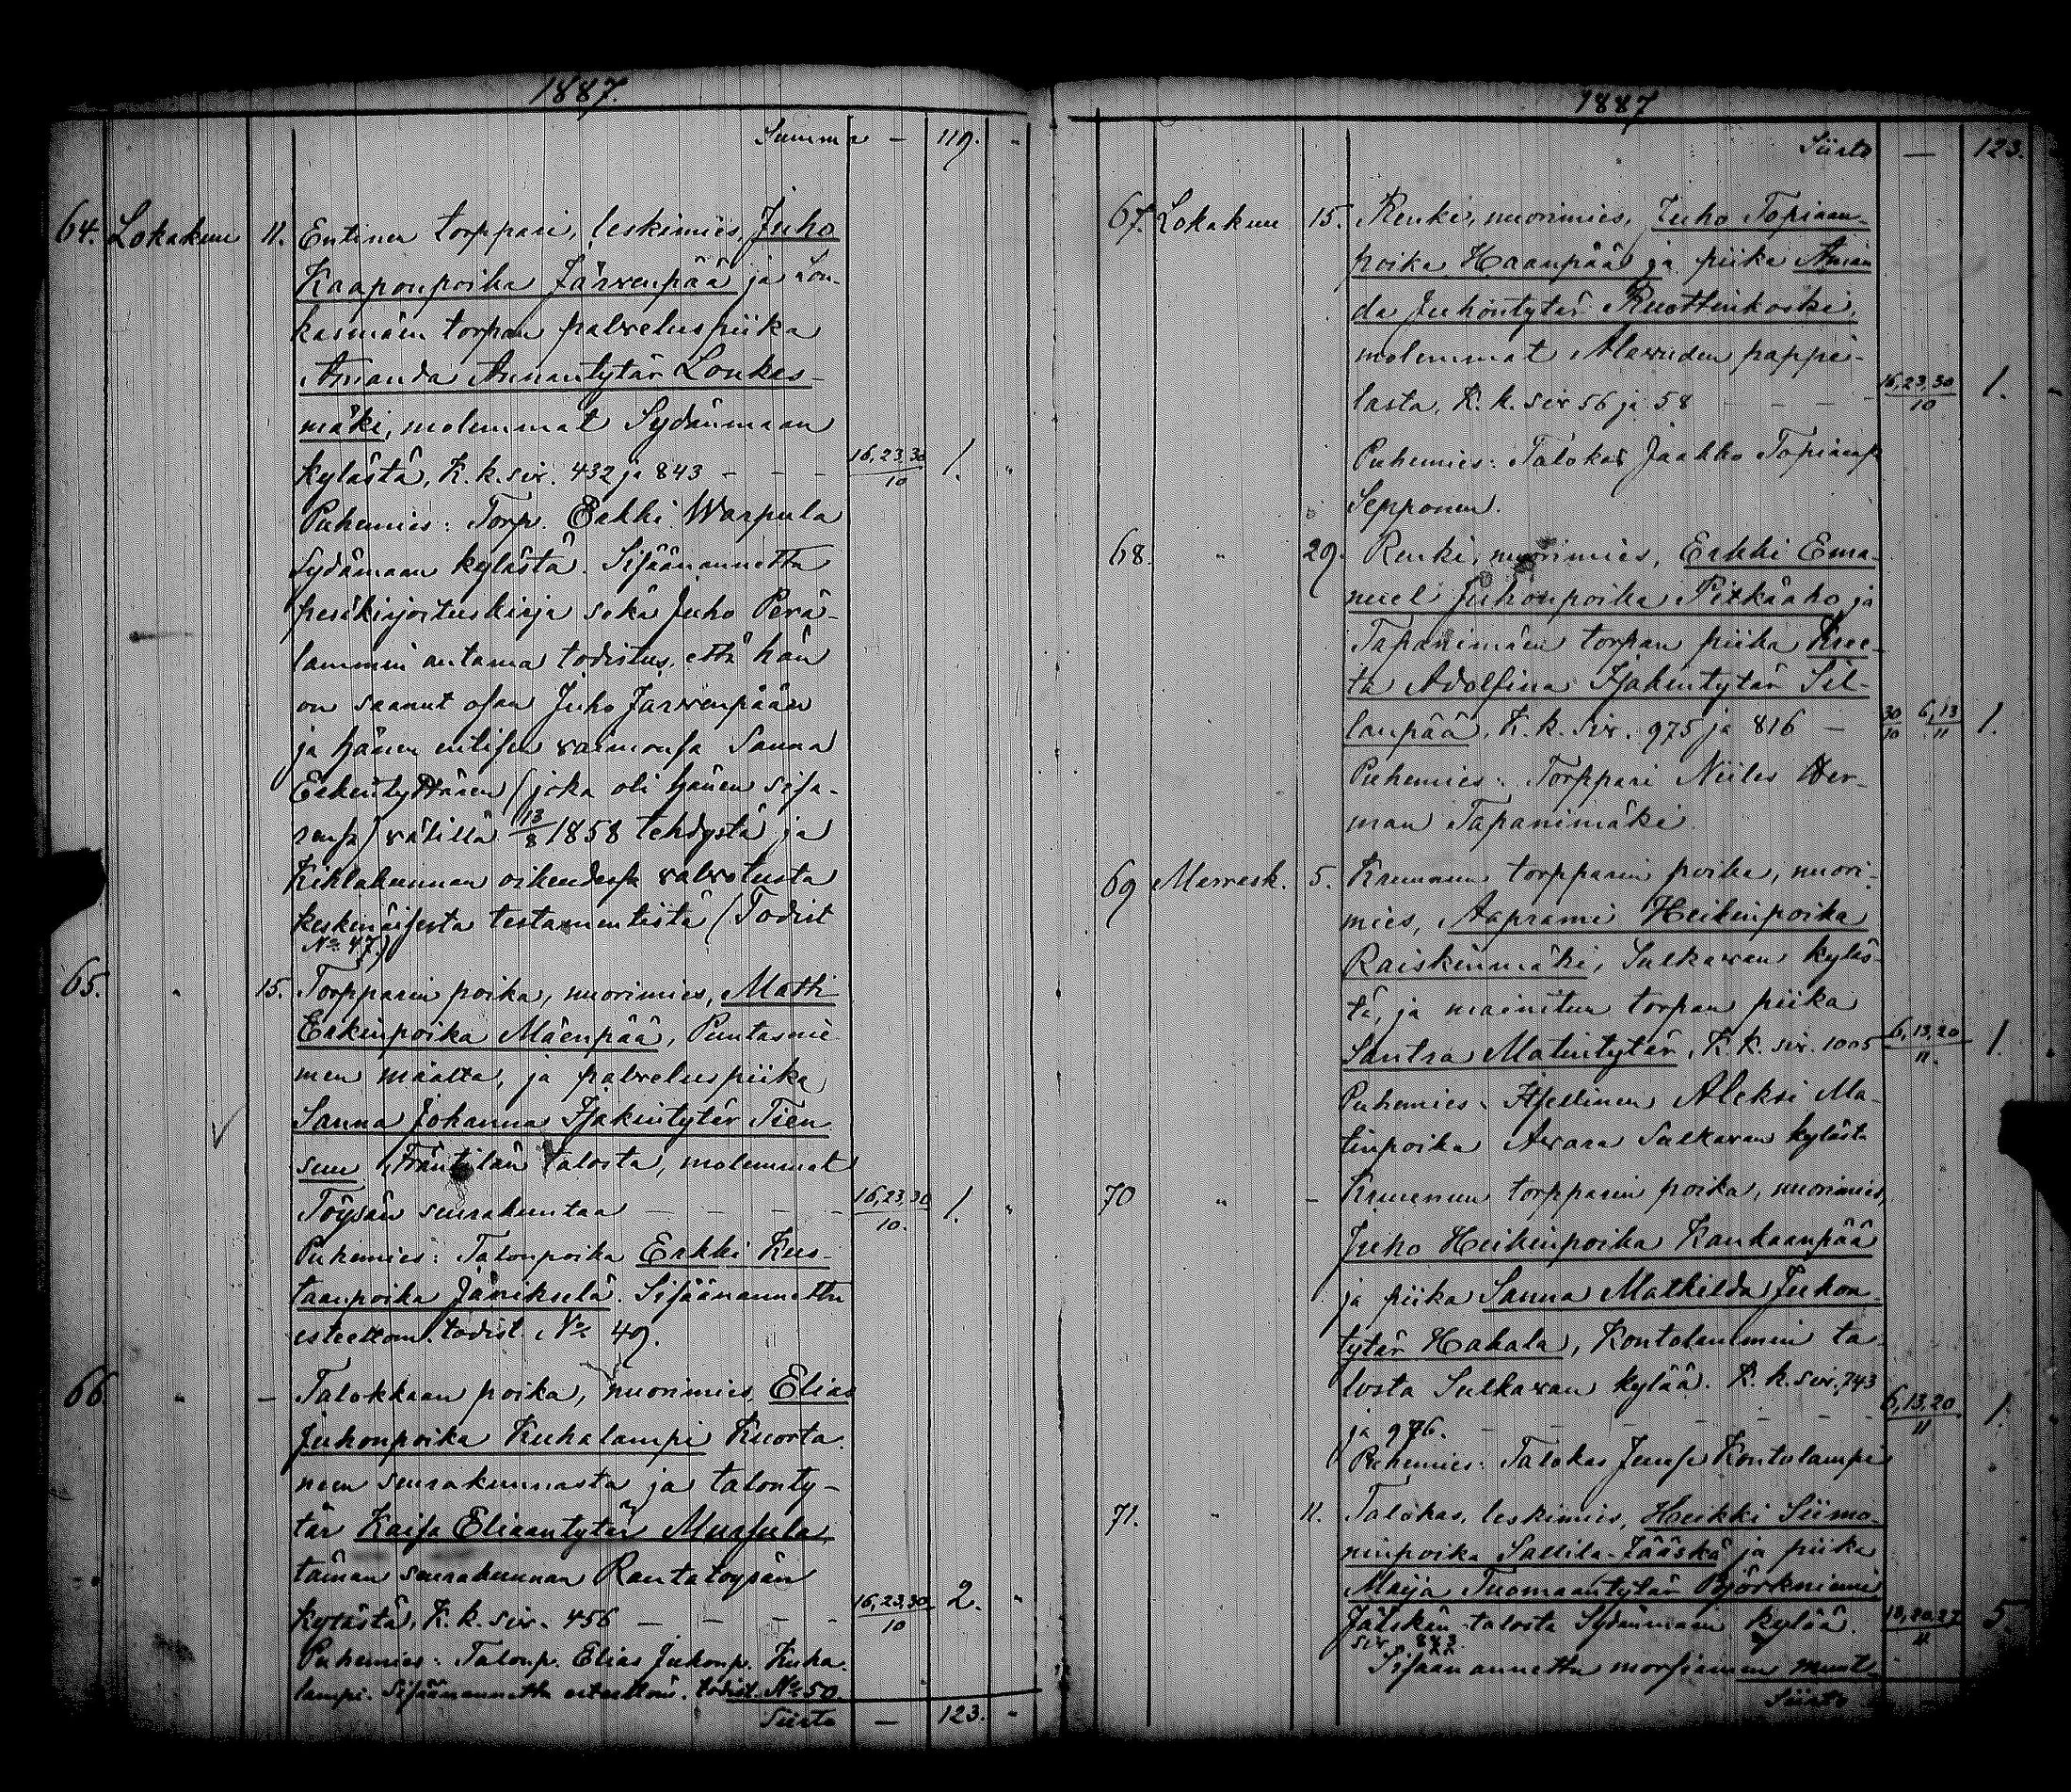 1887.
Summa - 119. -
64. Lokakuu 11. Entinen torppari, leskimies, Juho
Kaaponpoika Järwenpää ja Lou-
kasmäen torpan palveluspiika
Amanda Annantytär Loukas-
mäki, molemmat Sydänmaan
kylästä, K. k. siv. 432 ja 843 - - - 16,23,30/10 1. "
Puhemies: Torp. Erkki Warpula
Sydämaan kylästä. Sisäänannettu
pesäkirjoituskirja sekä Juho Perä-
lammin antama todistus, että hän
on saanut osan Juho Järwenpään
ja hänen entisen vaimonsa Sanna
Erkintyttären (joka oli hänen sisa-
rensa) välillä 13/8 1858 tehdystä ja
Kihlakunnan oikeudessa valvotusta
keskinäisestä testamentista (Todist
No 47.)
65. " 15. Torpparin poika, nuorimies, Matti
Erkinpoika Mäenpää, Puntasnie-
men mäalta, ja palveluspiika
Sanna Johanna Isakintytär Tien
suu Fräntilän talosta, molemmat
Töysän seurakuntaa - - - - 16,23,30/10. 1. "
Puhemies: Talonpoika Erkki Kus-
taanpoika Jäniskelä. Sisäänannettu
esteettöm. todist. No 49.
66. " - Talokkaan poika, nuorimies, Elias
Juhonpoika Kuhalampi Kuorta-
neen seurakunnasta ja talonty-
tär Kaisa Eliaantytär Mussula,
tämän seurakunnan Rantatöysän
kylästä, K. k. siv. 456 - - - - 16,23,30/10 2. "
Puhemies: Talonp. Elias Juhonp. Kuha-
lampi. Sisäänannettu esteettöm. todist. No 50.
Siirto - 123. -
1887
Siirto - 123.
67. Lokakuu 15. Renki, nuorimies, Juho Topiaan-
poika Haanpää ja piika Aman
da Juhontytär Ruottinkoski,
molemmat Alavuden pappi-
lasta, K. k. siv 56 ja 58 - - - - 16,23,30/10 1. -
Puhemies: Talokas Jaakko Topiaanp
Sepponen.
68. " 29. Renki, nuorimies, Erkki Ema-
nuel Juhonpoika Pitkäaho ja
Tapanimäen torpan piika Kree-
ta Adolfina Isakintytär Sil-
lanpää, K. k. siv. 975 ja 816 - 30/10 6,13/11 1.
Puhemies: Torppari Niiles Her-
man Tapanimäki.
69 Marrask. 5. Kruunun torpparin poika, nuori-
mies, Aaprami Heikinpoika
Raiskinmäki, Sulkavan kyläs-
tä, ja mainitun torpan piika
Santra Matintytär, K. k. siv. 1005 6,13,20/11. 1.
Puhemies: Itsellinen Aleksi Ma-
tinpoika Awara Sulkavan kylästä
70 " - Kruunun torpparin poika, nuorimies,
Juho Heikinpoika Kankaanpää
ja piika Sanna Mathilda Juhon-
tytär Hakala, Kontolammin ta-
losta Sulkavan kylää. K. k. siv. 743
ja 976. - - - - - 6,13,20/11 1.
Puhemies: Talokas Jenss Kontolampi
71. " 11. Talokas, leskimies, Heikki Siimo-
ninpoika Sallila-Jääskä ja piika
Maija Tuomaantytär Björkniemi
Jääskän talosta Sydänmaan kylää. 13,20,27/11 5.
siv. 843.
Sisäänannettu morsiamen muut-
Siirto